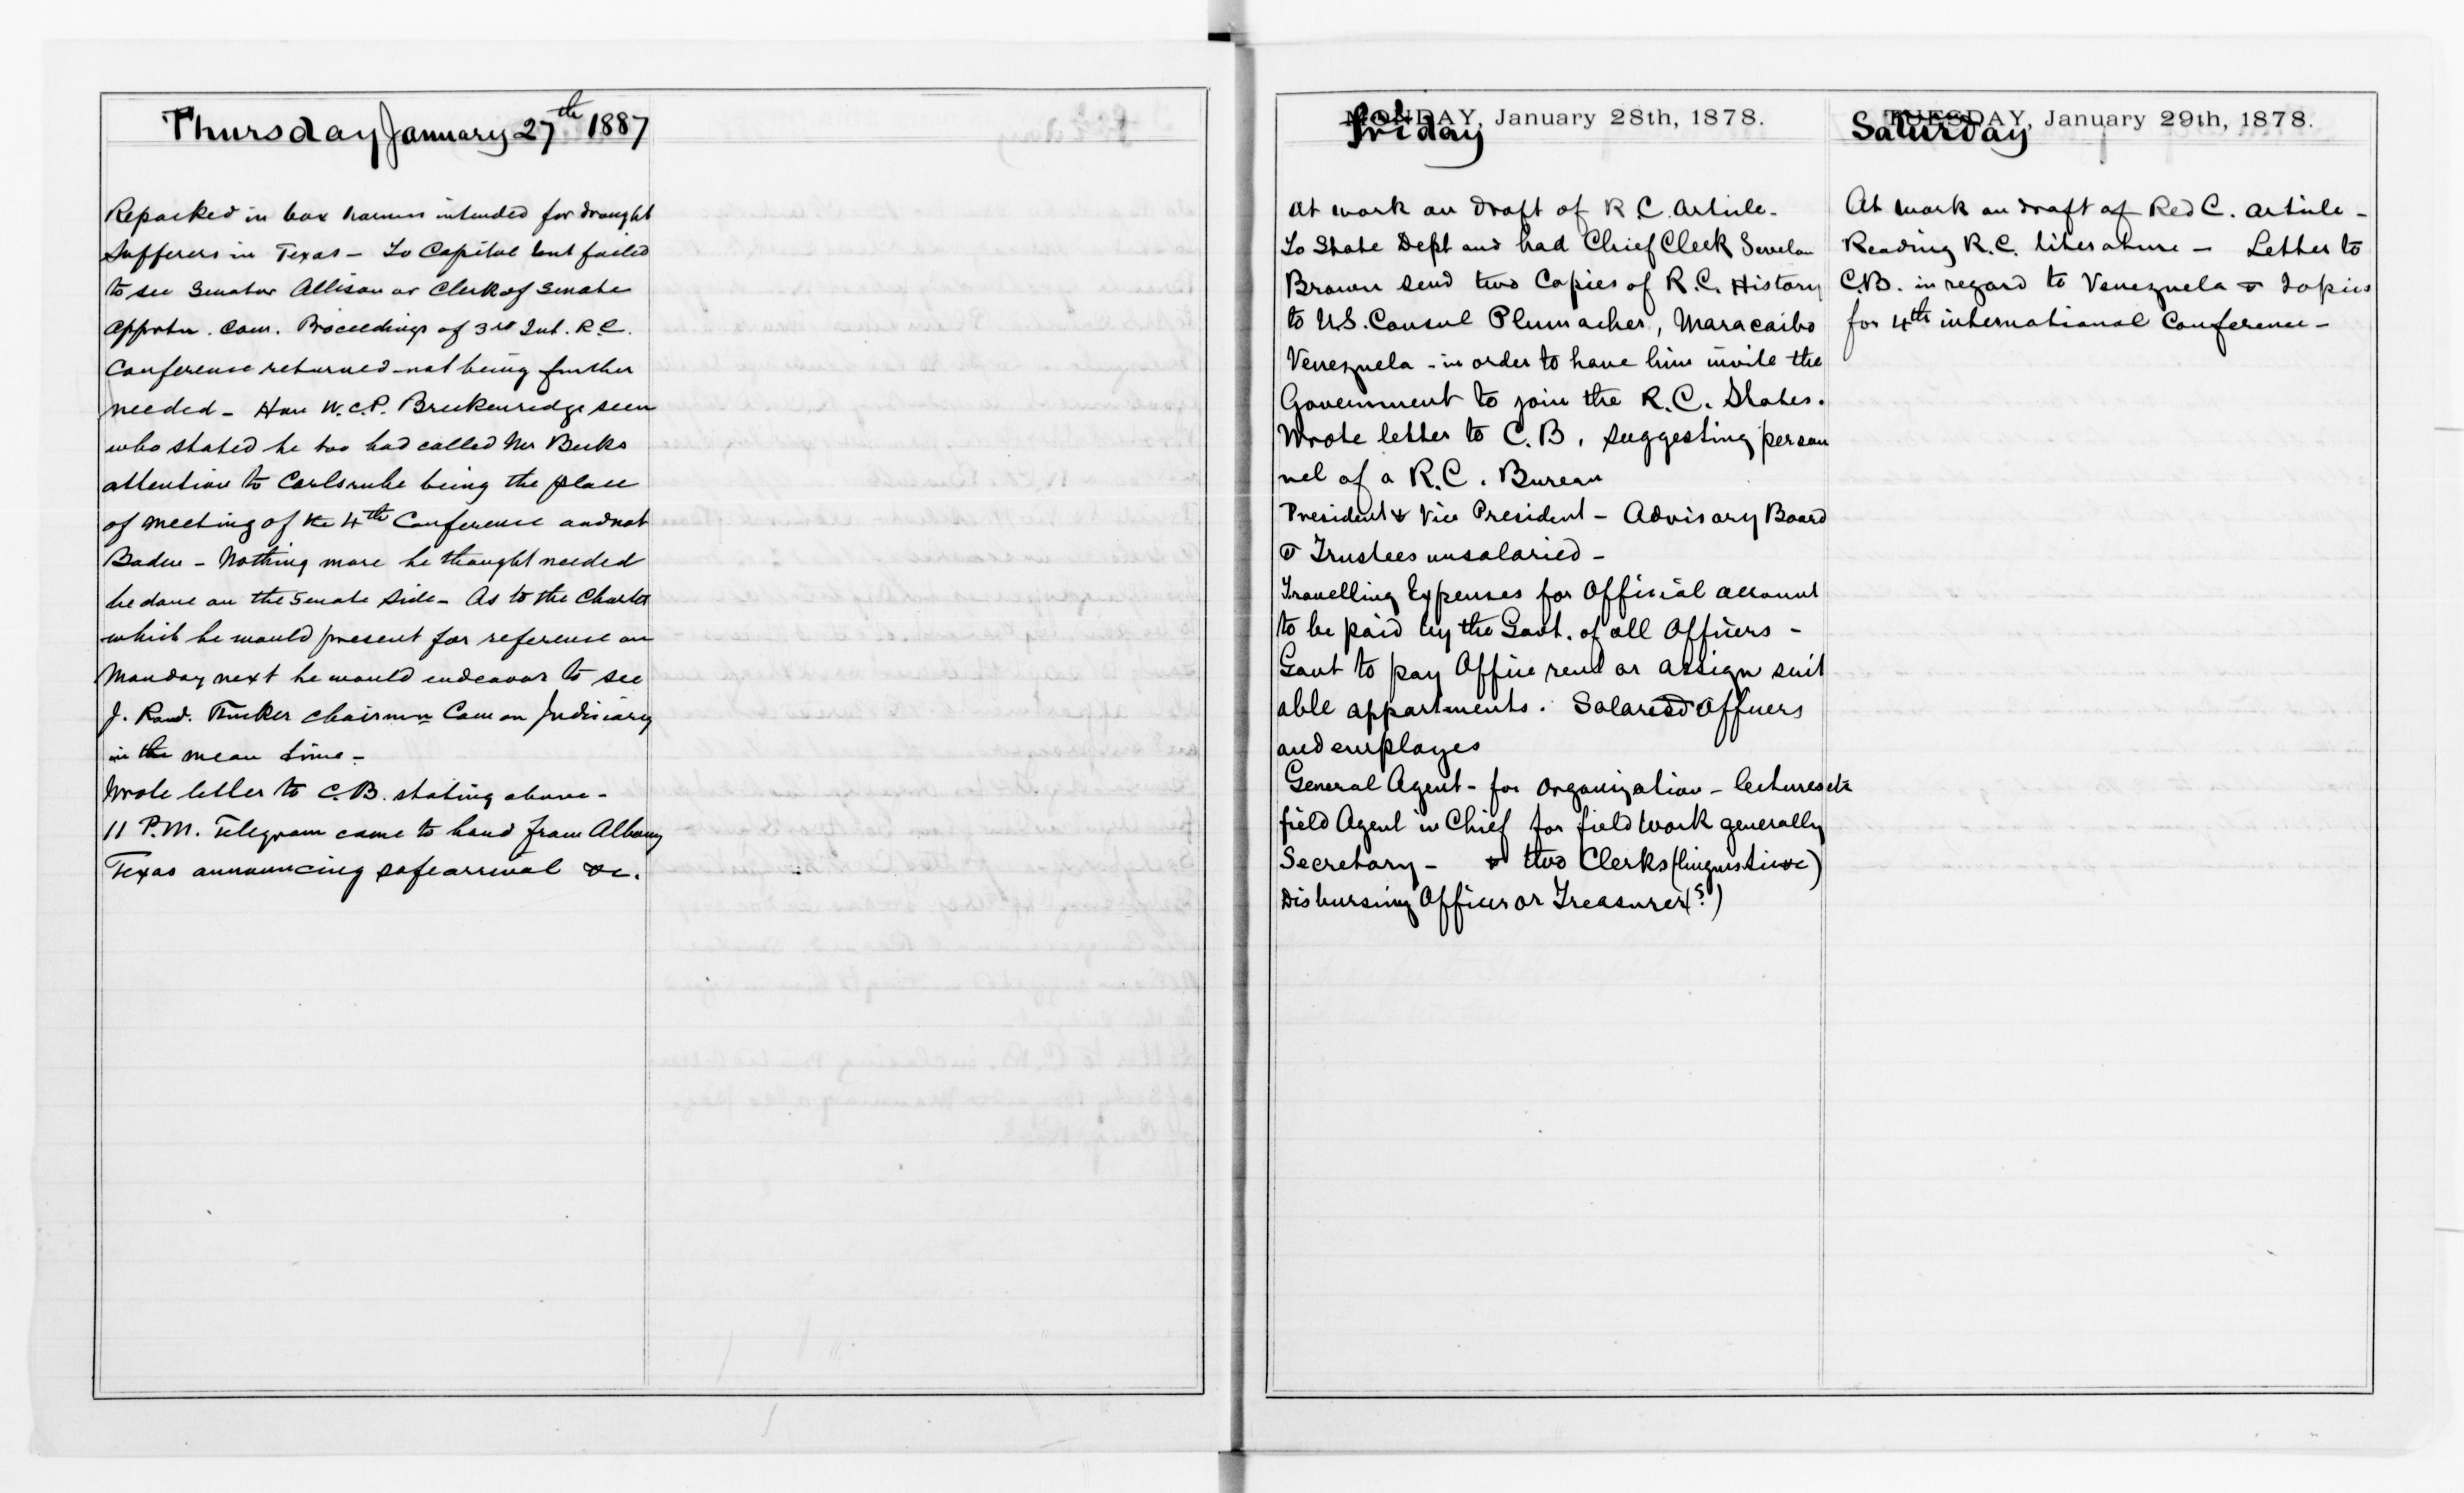 Thursday January 27th 1887
Repacked in box harness intended for drought
Sufferers in Texas - To Capitol but failed
to see Senator Allison or Clerk of Senate
Approtn. Com. Proceedings of 3rd Int. R.C.
Conference returned not being further
needed - Hon W.C.P. Breckenridge seen
who stated he too had called Mr Becks
attention to Carlsruhe being the place
of meeting of the 4th Conference and not
Baden - Nothing more he thought needed
be done on the Senate side - As to the Charter
which he would present for reference on
Monday next he would endeavor to see
J. Rand. Tucker chairmn Com on Judiciary
in the mean time -
Wrote letter to C.B. stating above -
11 P.M. Telegram came to hand from Albany
Texas announcing safe arrival &c.
MONDAY, January 28th, 1878.
Friday
At work on draft of R.C. Article -
To State Dept and had Chief Clerk Sevelon
Brown send two Copies of R.C. History
to U.S. Consul Plumacher, Maracaibo
Venezuela - in order to have him invite the
Government to join the R.C. States.
Wrote letter to C.B. suggesting person
nel of a R.C. Bureau
President & Vice President - Advisory Board
& Trustees unsalaried -
Travelling Expenses for Official account
to be paid by the Govt. of all Officers -
Govt to pay Office rent or assign suit
able appartments. Salaried Officers
and employes
General Agent - for organization - lectures etc
field Agent in Chief for field work generally
Secretary - & two Clerks (linguistic)
Disbursing Officer or Treasurer (?)
TUESDAY, January 29th, 1878.
Saturday
At work on draft of Red C. article -
Reading R.C. literature - Letter to
C.B. in regard to Venezuela & Topics
for 4th international Conference -